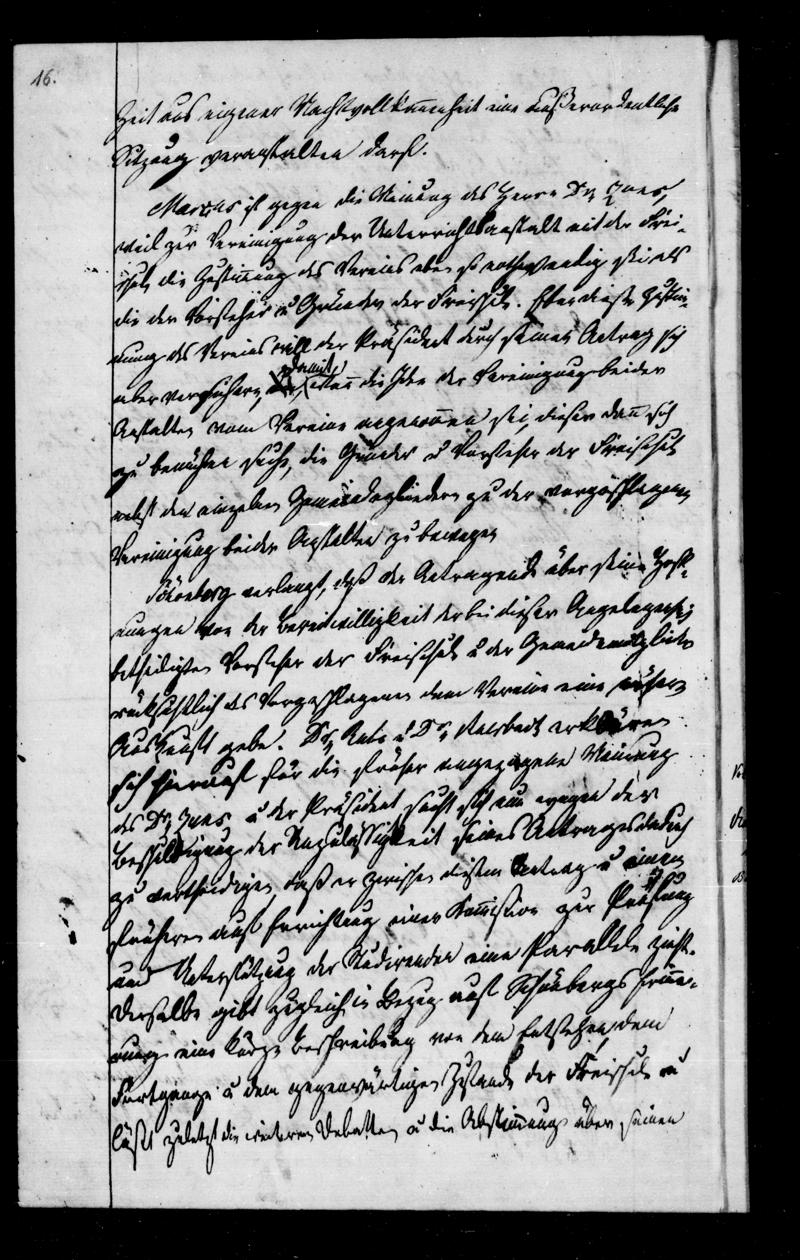 16.
Zeit aus eigener Machtvollkommenheit eine außerordentliche
Sitzung veranstalten darf.
Marcus ist gegen die Meinung des Herrn Dr
weil zur Vereinigung der Unterrichtsanstalt mit der Frei-
schule die Zustimmung des Vereins eben so nothwendig sei als
die der Vorsteher u Gründer der Freischule. Eben dieser Zustim-
mung des Vereins will der Präsident durch seinen Antrag sich
aber versichern, damit, wenn die Idee der Vereinigung beider
Anstalten vom Vereine angenommen sei, dieser dann sich
zu bemühen suche, die Gründer u Vorsteher der Freischule
nebst den einzelnen Gemeindegliedern zu der vorgeschlagenen
Vereinigung beider Anstalten zu bewegen
Schönberg verlangt, daß der Antragende über seine Hoff-
nungen von der Bereitwilligkeit der bei dieser Angelegenheit
betheiligten Vorsteher der Freischule u der Gemeindemitglieder
rücksichtlich des Vorgeschlagenen dem Vereine eine nähere
Auskunft gebe. Dr u Dr erklären
sich hierauf für die früher angezogene Meinung
des Dr u der Präsident sucht sich nun wegen der
Beschuldigung der Unzulässigkeit seines Antrages dadurch
zu vertheidigen, daß er zwischen diesem Antrag u einem
früheren auf Errichtung einer Kommission zur Prüfung
und Unterstützung der Studirenden eine Parallele zieht.
Derselbe gibt zugleich in Bezug auf Schönbergs Erinne-
rung eine kurze Beschreibung von dem Entstehen, dem
Fortgange u dem gegenwärtigen Zustande der Freischule u
läßt zuletzt die weiteren Debatten u die Abstimmung über seinen